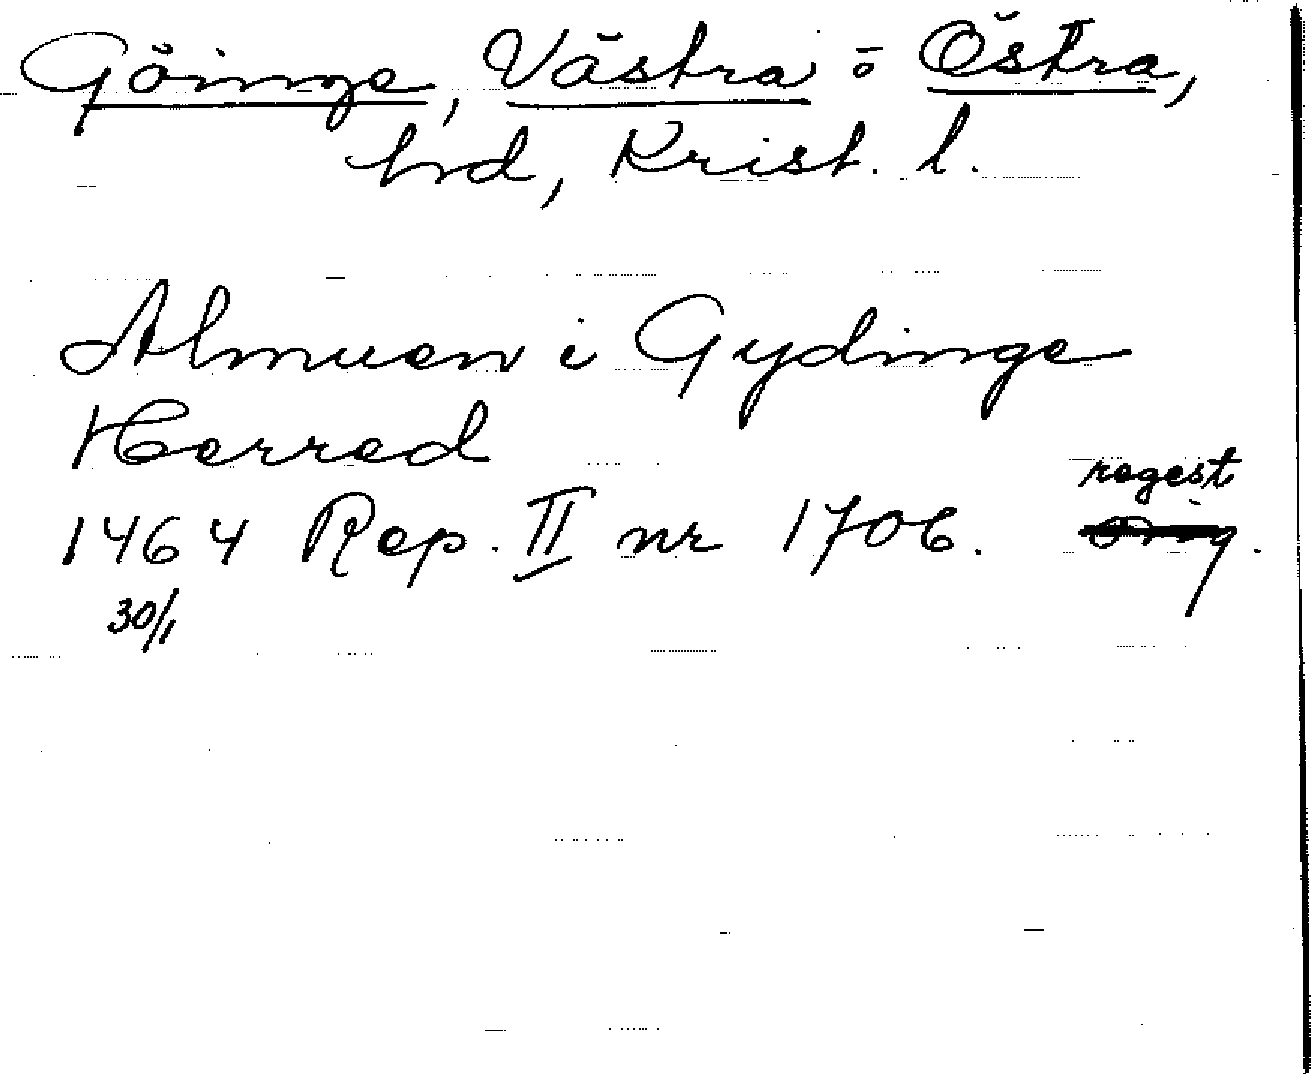 Göinge, Västra o Östra,
hrd, Krist. l.
Almuen i Gydinge
Herred
regest
1464 Rep. II nr 1706.
30/1